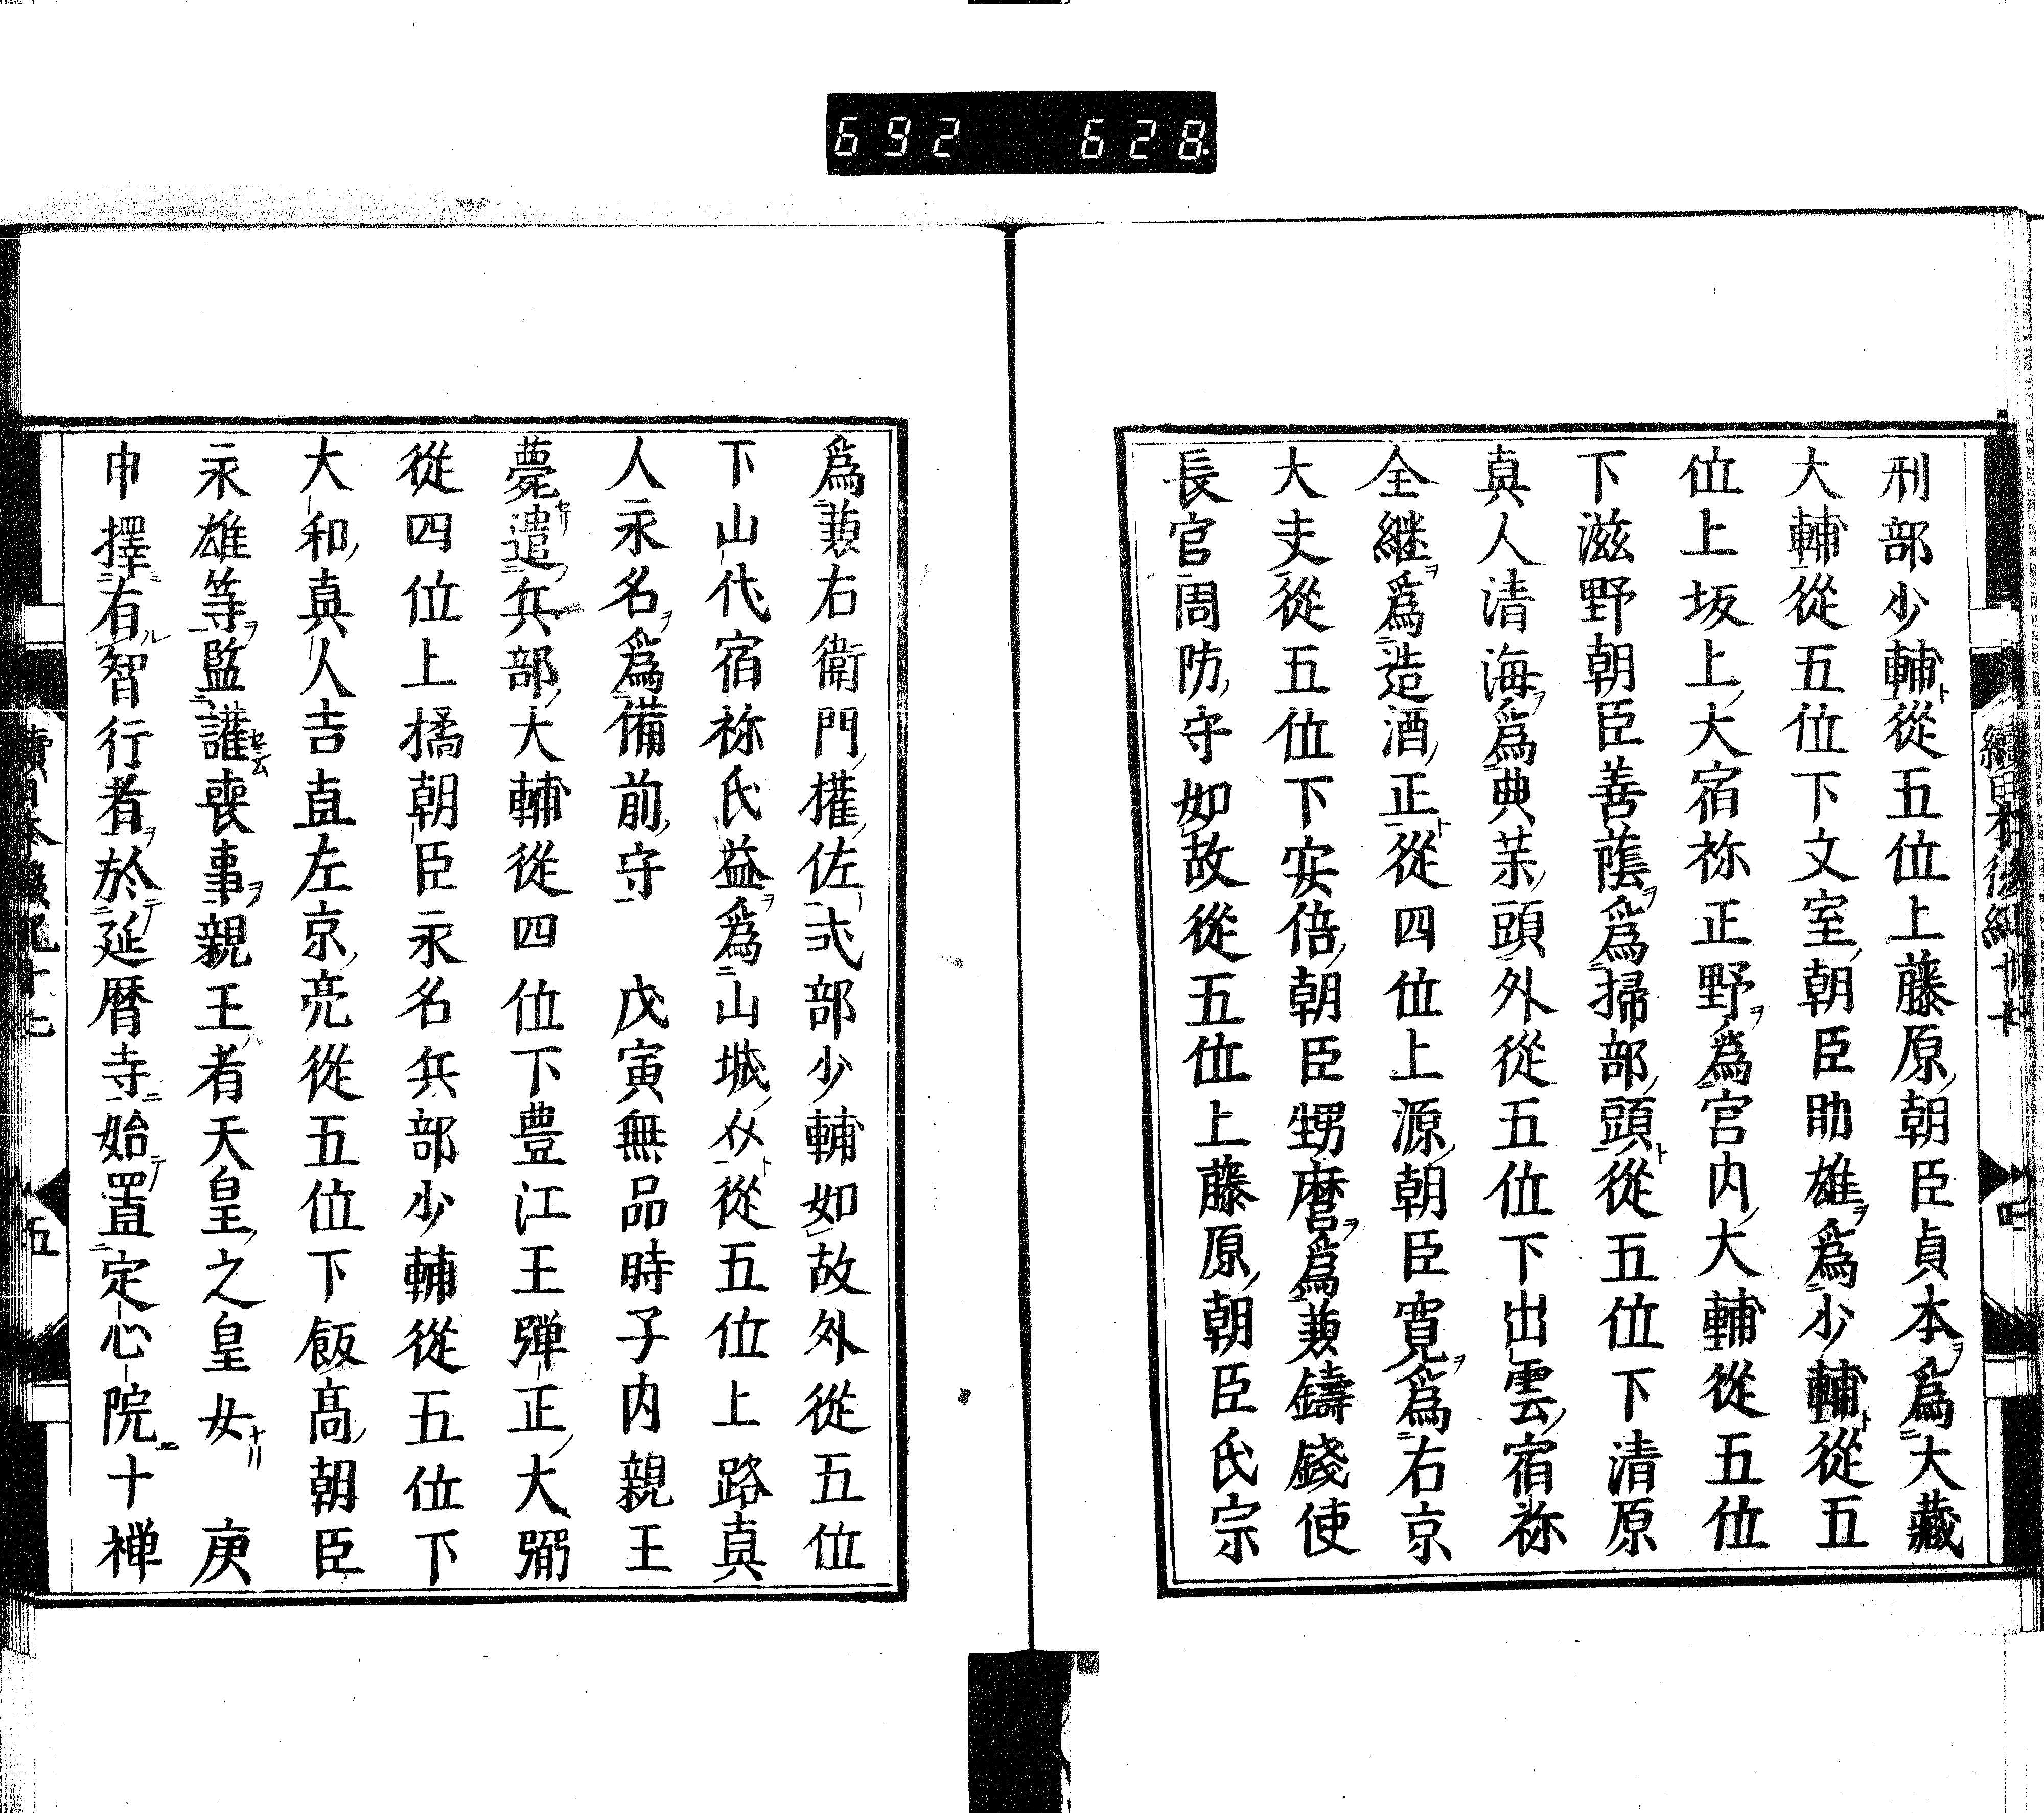 692 628
續日本後紀十七
四
刑部少輔從五位上藤原朝臣貞本爲大藏
大輔從五位下文室朝臣助雄爲少輔從五
位上坂上大宿祢正野爲宮内大輔從五位
下滋野朝臣善蔭爲掃部頭從五位下清原
真人清海爲典藥頭外從五位下出雲宿祢
全継爲造酒正從四位上源朝臣寛爲右京
大夫從五位下安倍朝臣甥麿爲兼鑄錢使
長官周防守如故從五位上藤原朝臣氏宗
爲兼右衛門權佐式部少輔如故外從五位
下山代宿祢氏益爲山城介從五位上路真
人永名爲備前守 戊寅無品時子内親王
薨遣兵部大輔從四位下豊江王彈正大弼
從四位上橘朝臣永名兵部少輔從五位下
大和真人吉直左京亮從五位下飯髙朝臣
永雄等監護喪事親王者天皇之皇女 庚
申擇有智行者於延暦寺始置定心院十禅
續日本後紀十七
五